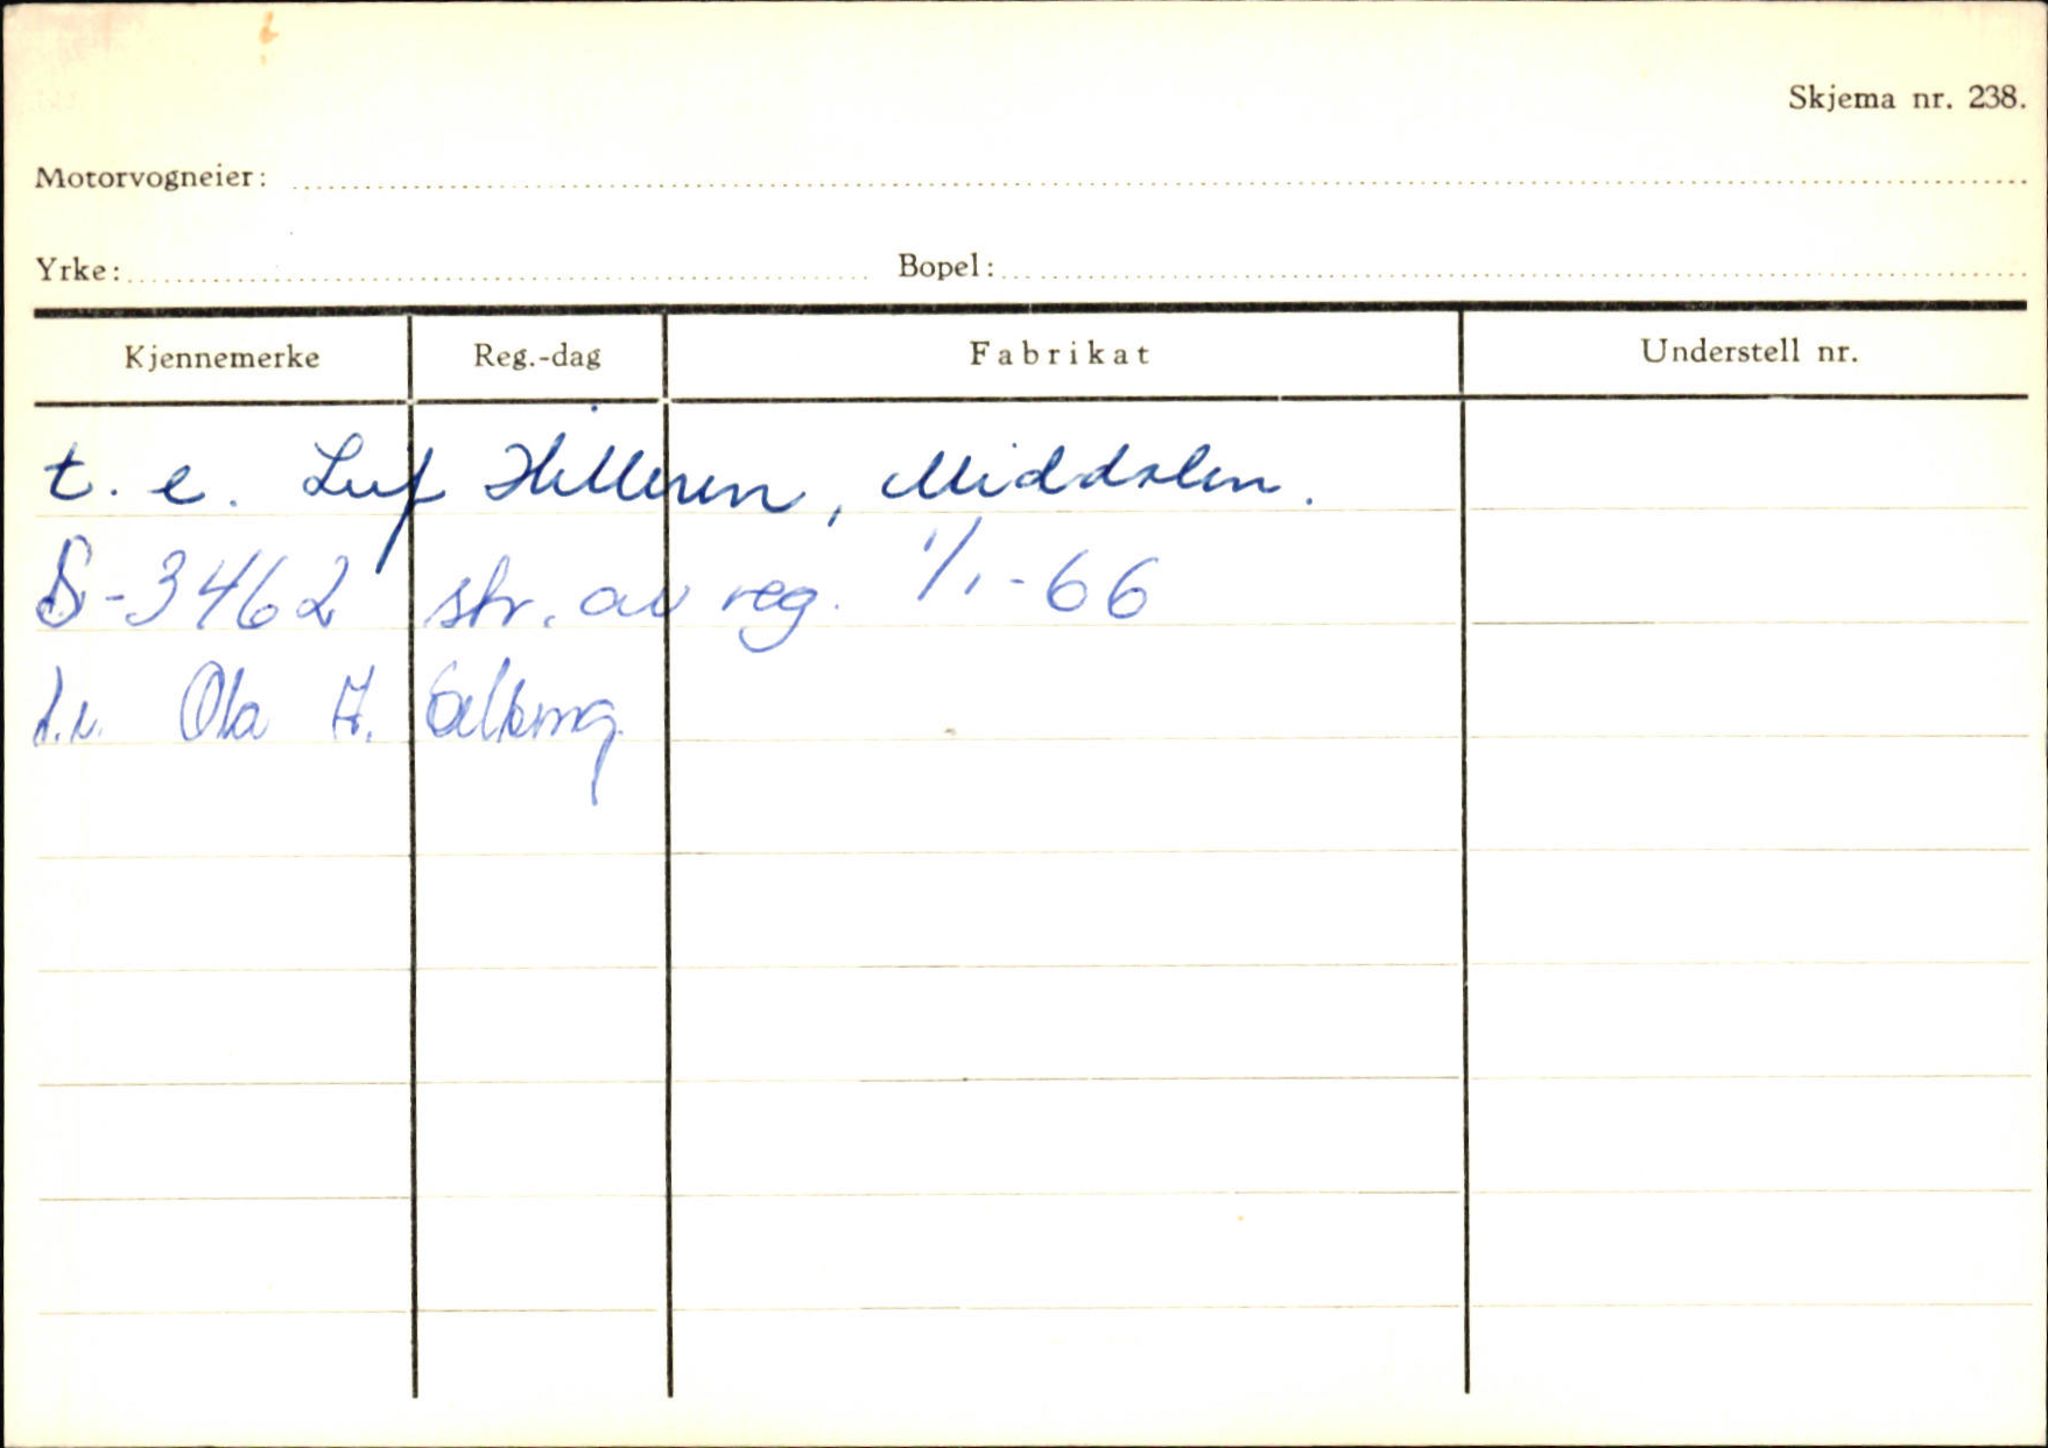 Skjema nr. 238.
Motorvogneier:
Yrke: Bopel:
Kjennemerke Reg.-dag Fabrikat Understell nr.
t. e. Leif Hilleren, Middalen.
S-3462 str. av reg. 1/1-66
Ola H.